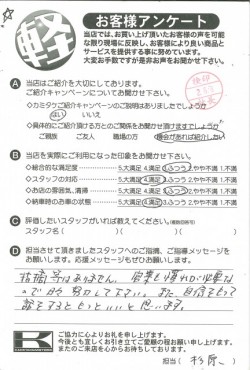 軽
お客様アンケート
当店では、お買い上げ頂いたお客様の声を可能
な限り現場に反映し、お客様により良い商品と
サービスを提供する事に努めています。
大変お手数ですが是非お声をお聞かせ下さい。
A 当店はご紹介を大切にしております。
ご紹介キャンペーンについてお聞かせ下さい。
◇カミタケご紹介キャンペーンのご説明はありましたでしょうか
はい いいえ
◇具体的にご紹介頂ける方とのご関係をお聞かせ頂けますでしょうか
ご親族 ご友人 職場の方 機会があれば紹介したい
B 当店を実際にご利用になった印象をお聞かせ下さい。
◇総合的な満足度 5.大満足 4.満足 3.ふつう 2.やや不満 1.不満
◇スタッフの対応 5.大満足 4.満足 3.ふつう 2.やや不満 1.不満
◇お店の雰囲気、清掃 5.大満足 4.満足 3.ふつう 2.やや不満 1.不満
◇納車時のお車の状態 5.大満足 4.満足 3.ふつう 2.やや不満 1.不満
C 評価したいスタッフがいれば教えてください。(複数回答可)
スタッフ名( )( )
D 担当させて頂きましたスタッフへのご指摘、ご指導メッセージを
お願いします。応援メッセージもぜひお願いします。
指摘等はありません。
と思います。
K
ご協力に心よりお礼を申し上げます。
今後とも宜しくお引き立てご愛顧の程お願い申し上げます。
またのご来店を心からお待ちしております。
担当( 杉原 )